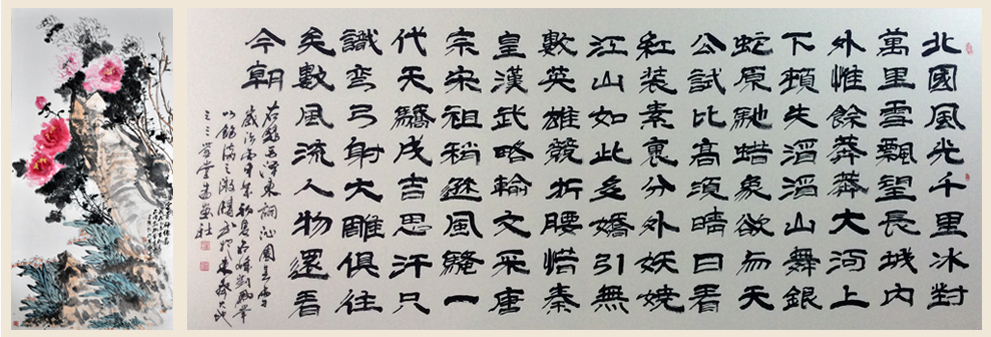 北國風光千里冰封
萬里雪飄望長城内
外惟餘莽莽大河上
下頓失滔滔山舞銀
蛇原馳蜡象欲与天
公試比高須晴日看
紅装素裹分外妖嬈
江山如此多嬌引無
數英雄競折腰惜秦
皇漢武略輸文采唐
宗宋祖稍遜風騷一
代天驕成吉思汗只
識弯弓射大雕俱往
矣數風流人物還看
今朝
右錄毛澤東詞沁園春雪